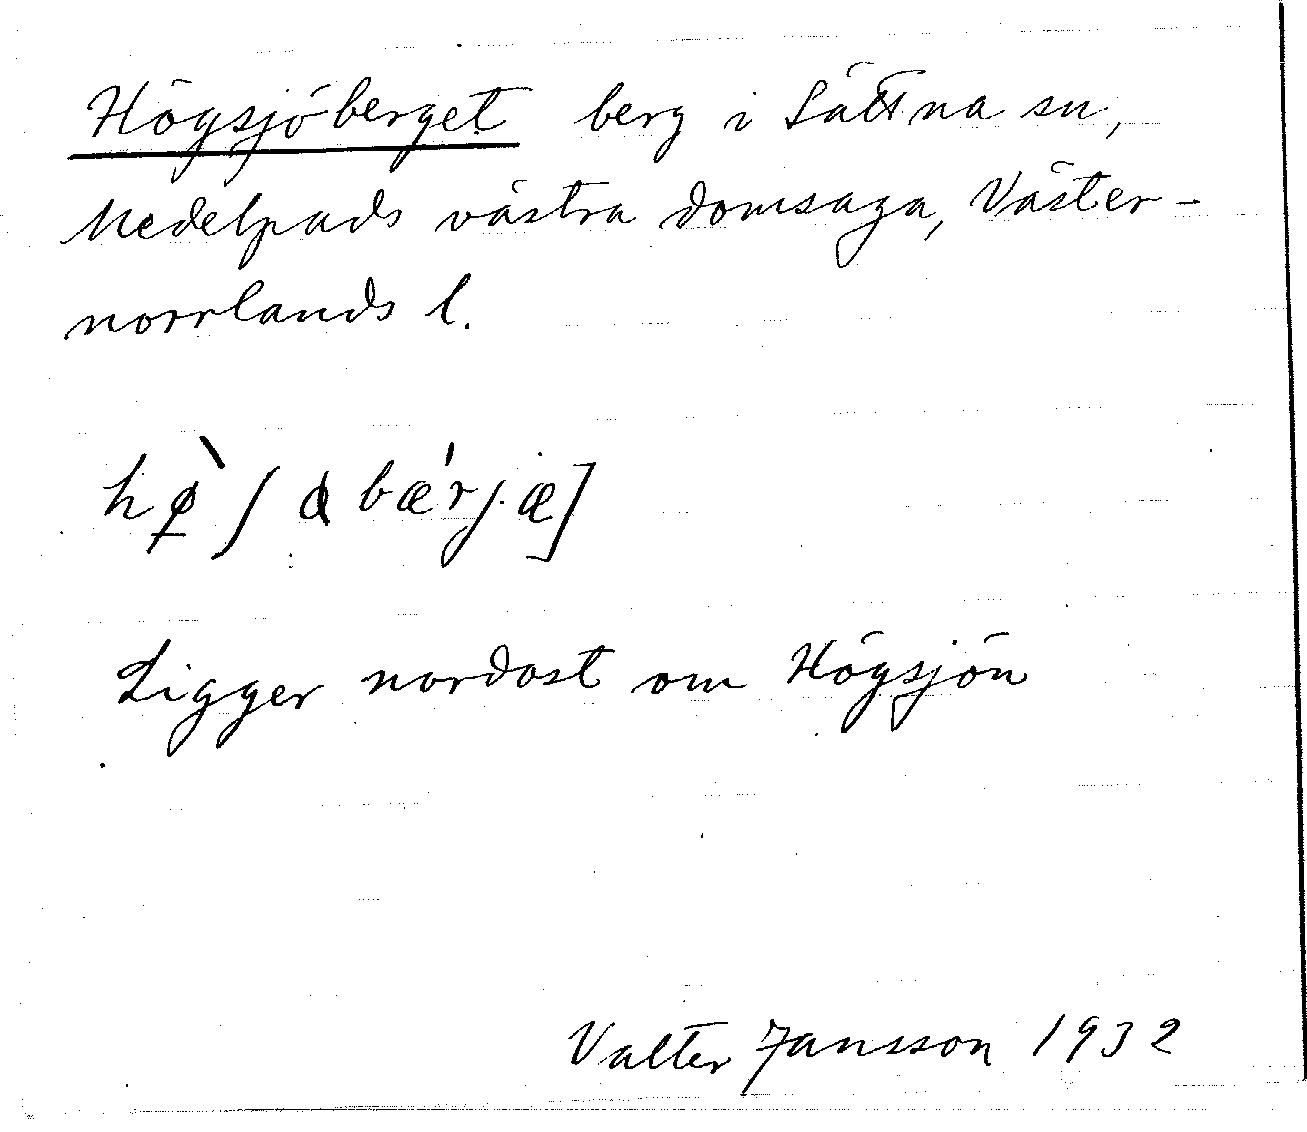 Högsjöberget berg i Sättna sn,
Medelpads västra domsaga, Väster-
norrlands l.
hø̀ʃɑbæ'rjæ]
Ligger nordost om Högsjön
Valter Jansson 1932